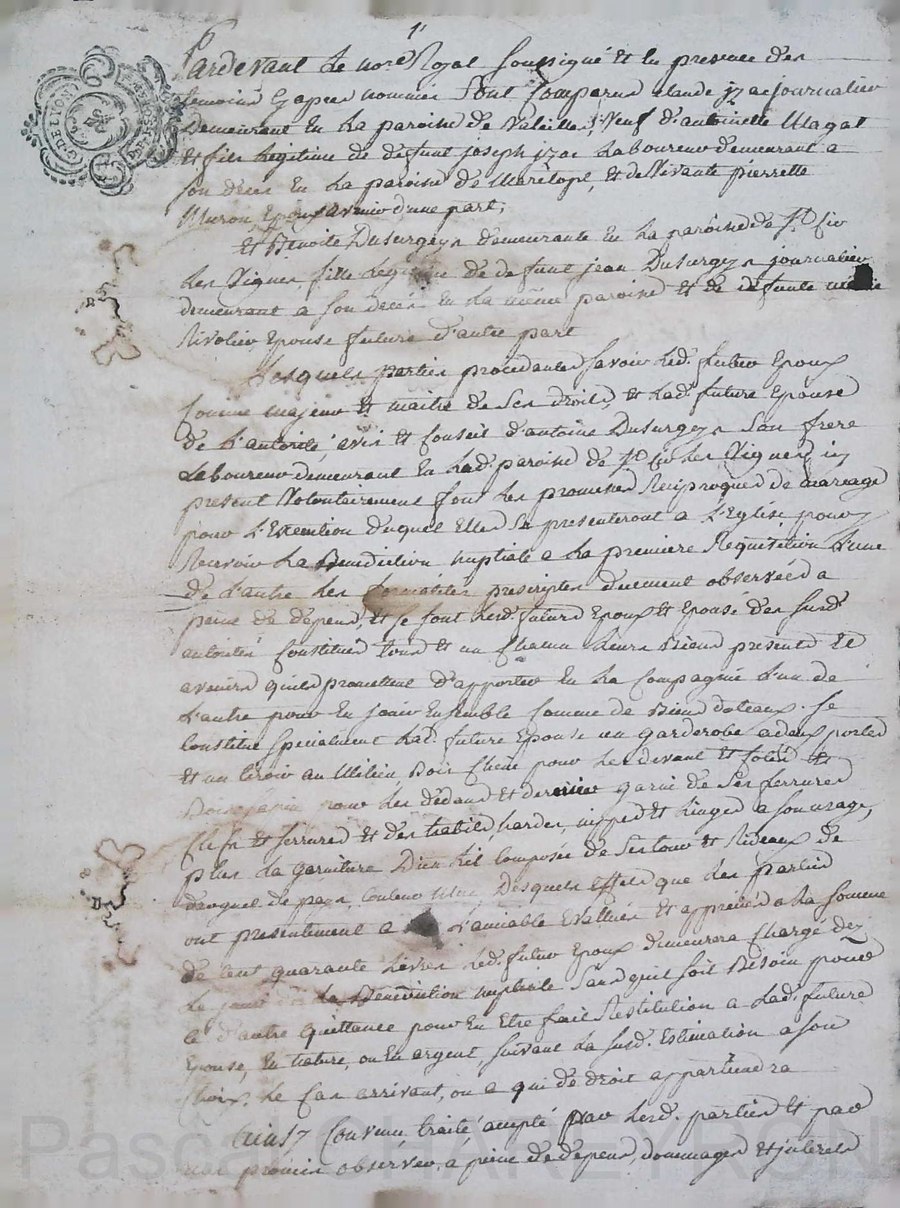 1
Pardevant Le nore. Royal soussigné et en presence des
temoins cy apres nommés sont comparus claude jzac journalier
Demeurant en La paroisse de Valeilles, Veuf d'antoinette Magat
et fils Legitime de deffunt joseph jzac Laboureur demeurant a
son decés en La paroisse de Marclopt, et de vivante pierrette
Muron, Epoux avenir d'une part;
et Benoite Dusurgeys demeurante en La paroisse de St. Cir
Les Vignes fille Legitime de defunt jean Dusurgeys journalier
demeurant a son decés en La même paroisse et de defunte
Rivolier Epouse future d'autre part
Lesquels parties procedantes savoir Led. futur Epoux
comme majeur et maitre de ses droits, et Lad. future Epouse
de L'autorité, avis et conseil d'antoine Dusurgeys son frere
Laboureur demeurant en Lad. paroisse de St. Cir Les Vignes, icy
present Volontairement font Les promesses Reciproques de mariage
pour L'Execution duquel Elles se presenteront a L'Eglise pour y
Recevoir La Benediction nuptiale a La premiere Requisition L'une
de L'autre Les formalités prescriptes duement observées a
peine de depens, et se sont Lesd. futurs Epoux et Epouse des susd.
autorités constitués tous et un chacun Leurs Biens presents et
avenirs qu'ils promettent d'apporter en La Compagnie L'un de
L'autre pour en jouir Ensemble comme de Biens dotaux. Se
constitue specialement Lad. future Epouse un garderobe a deux portes
et un tiroir au Milieu Bois chene pour Les devant et cotés et
Bois sapin pour Les dedans et derriere garni de ses ferrures
clefs et serrures et des habits hardes, nippes et Linges a son usage,
plus La garniture D'un Lit composée de ses tour et Rideaux de
de pays, couleur Desquels Effets que Les parties
ont presentement a L'amiable Evallués et appreciés a La somme
de cent quarante Livres Led. futur Epoux demeurera chargé dez
Le jour de La Benediction nuptiale sans qu'il soit Besoin pour
ce d'autre quittance pour en Etre fait Restitution a Lad. future
Epouse, en nature, ou en argent, suivant La susd. Estimation a son
choix, Le cas arrivant, ou a qui de droit appartiendra
Ainsy Convenu, traité accepté par Lesd. parties et par
promis observer, a peine de depens, dommages et interets
G. DE LYON
Pascal CHAREYRON